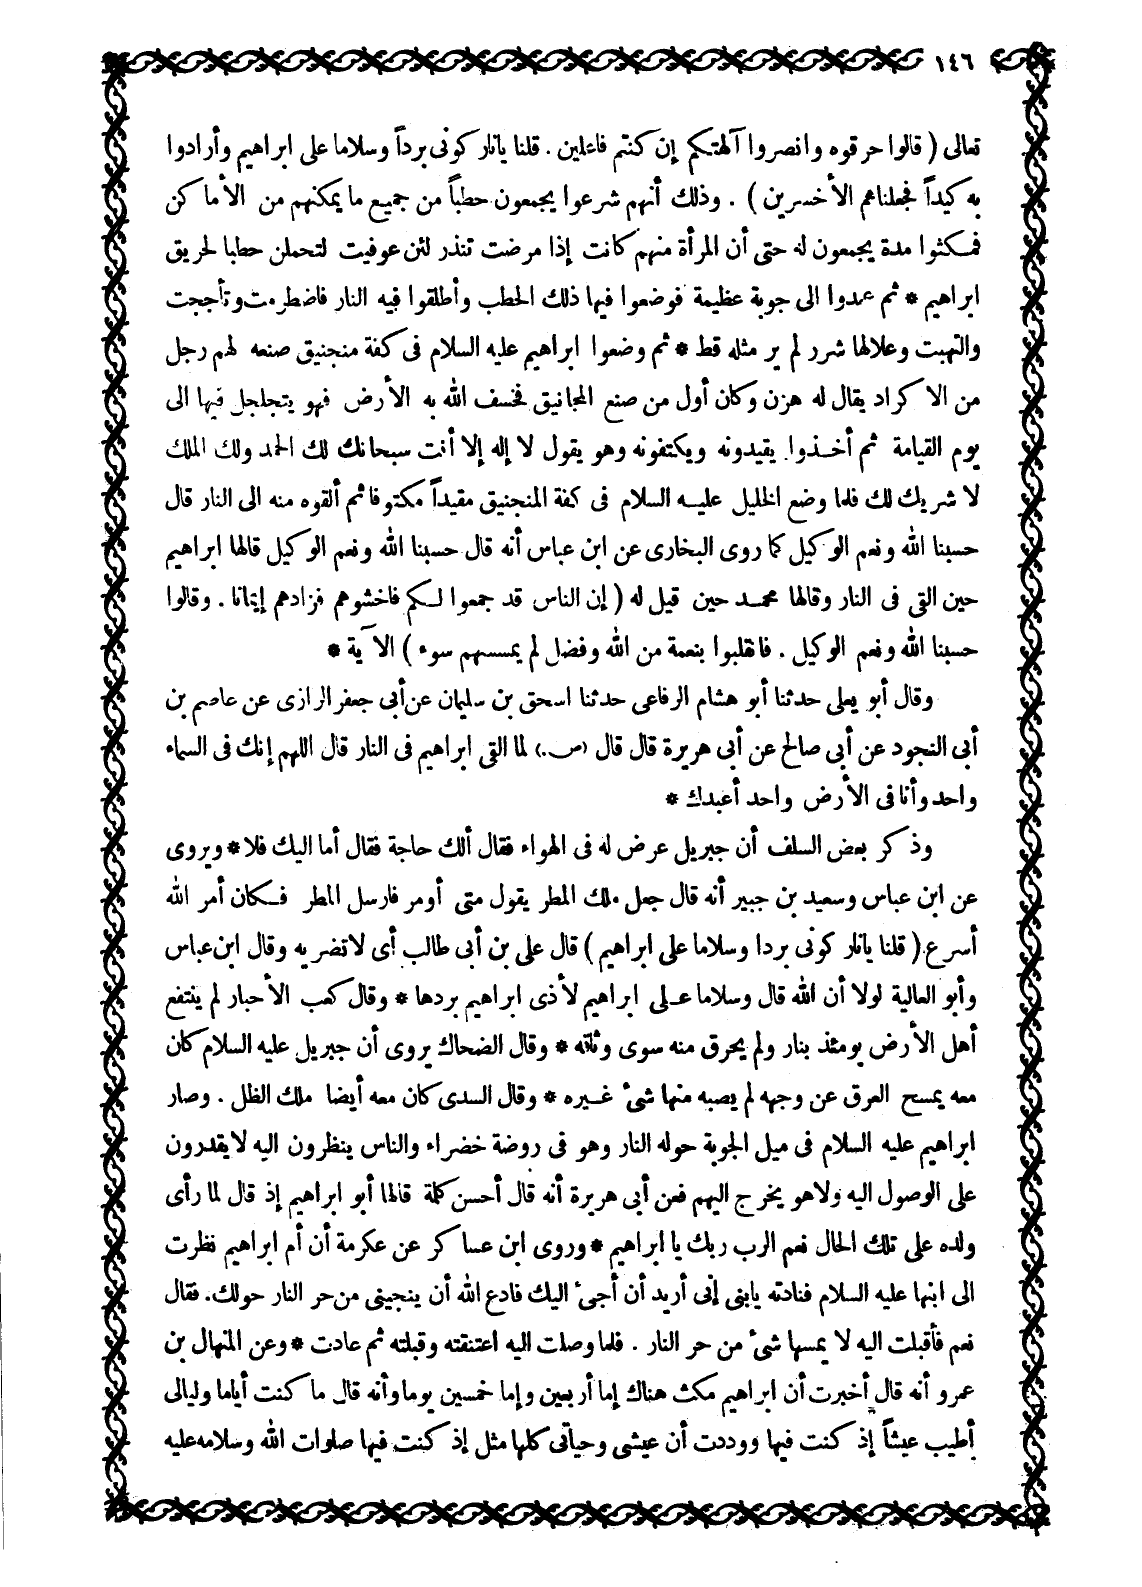 ١٤٦
تعالى ( قالوا حرقوه وانصروا آلهتكم إن كنتم فاعلين . قلنا يانار كونى برداً وسلاما على ابراهيم وأرادوا
به كيداً فجعلناهم الأخسرين ) . وذلك أنهم شرعوا يجمعون حطباً من جميع ما يمكنهم من الأماكن
فمكثوا مدة يجمعون له حتى أن المرأة منهم كانت إذا مرضت تنذر لئن عوفيت لتحملن حطبا لحريق
ابراهيم * ثم عمدوا الى جوبة عظيمة فوضعوا فيها ذلك الحطب وأطلقوا فيه النار فاضطرمت وتأججت
والتهبت وعلالها شرر لم ير مثله قط * ثم وضعوا ابراهيم عليه السلام فى كفة منجنيق صنعه لهم رجل
من الاكراد يقال له هزن وكان أول من صنع المجانيق فخسف الله به الأرض فهو يتجلجل فيها الى
يوم القيامة ثم أخذوا يقيدونه ويكتفونه وهو يقول لا إله إلا أنت سبحانك لك الحمد ولك الملك
لا شريك لك فلما وضع الخليل عليه السلام فى كفة المنجنيق مقيداً مكتوفا ثم ألقوه منه الى النار قال
حسبنا الله ونعم الوكيل كما روى البخارى عن ابن عباس أنه قال حسبنا الله ونعم الوكيل قالها ابراهيم
حين القى فى النار وقالها محمد حين قيل له ( إن الناس قد جمعوا لكم فاخشوهم فزادهم إيمانا . وقالوا
حسبنا الله ونعم الوكيل . فانقلبوا بنعمة من الله وفضل لم يمسسهم سوء ) الآية *
وقال أبو يعلى حدثنا أبو هشام الرفاعى حدثنا اسحق بن سليمان عن أبى جعفر الرازى عن عاصم بن
أبى النجود عن أبى صالح عن أبى هريرة قال قال (ص.) لما القى ابراهيم فى النار قال اللهم إنك فى السماء
واحد وأنا فى الأرض واحد أعبدك *
وذكر بعض السلف أن جبريل عرض له فى الهواء فقال ألك حاجة فقال أما اليك فلا * ويروى
عن ابن عباس وسعيد بن جبير أنه قال جعل ملك المطر يقول متى أومر فارسل المطر فكان أمر الله
أسرع ( قلنا يانار كونى بردا وسلاما على ابراهيم ) قال على بن أبى طالب أى لاتضريه وقال ابن عباس
وأبو العالية لولا أن الله قال وسلاما على ابراهيم لأذى ابراهيم بردها * وقال كعب الأحبار لم ينتفع
أهل الأرض يومئذ بنار ولم يحرق منه سوى وثاقه * وقال الضحاك يروى أن جبريل عليه السلام كان
معه يمسح العرق عن وجهه لم يصبه منها شىء غيره * وقال السدى كان معه أيضا ملك الظل . وصار
ابراهيم عليه السلام فى ميل الجوبة حوله النار وهو فى روضة خضراء والناس ينظرون اليه لايقدرون
على الوصول اليه ولاهو يخرج اليهم فعن أبى هريرة أنه قال أحسن كلمة قالها أبو ابراهيم إذ قال لما رأى
ولده على تلك الحال نعم الرب ربك يا ابراهيم * وروى ابن عساكر عن عكرمة أن أم ابراهيم نظرت
الى ابنها عليه السلام فنادته يابنى إنى أريد أن أجىء اليك فادع الله أن ينجينى من حر النار حولك. فقال
نعم فأقبلت اليه لا يمسها شىء من حر النار . فلما وصلت اليه اعتنقته وقبلته ثم عادت * وعن المنهال بن
عمرو أنه قال أخبرت أن ابراهيم مكث هناك إما أربعين وإما خمسين يوما وأنه قال ما كنت أياما وليالى
أطيب عيشاً إذ كنت فيها ووددت أن عيشى وحياتى كلها مثل إذ كنت فيها صلوات الله وسلامه عليه